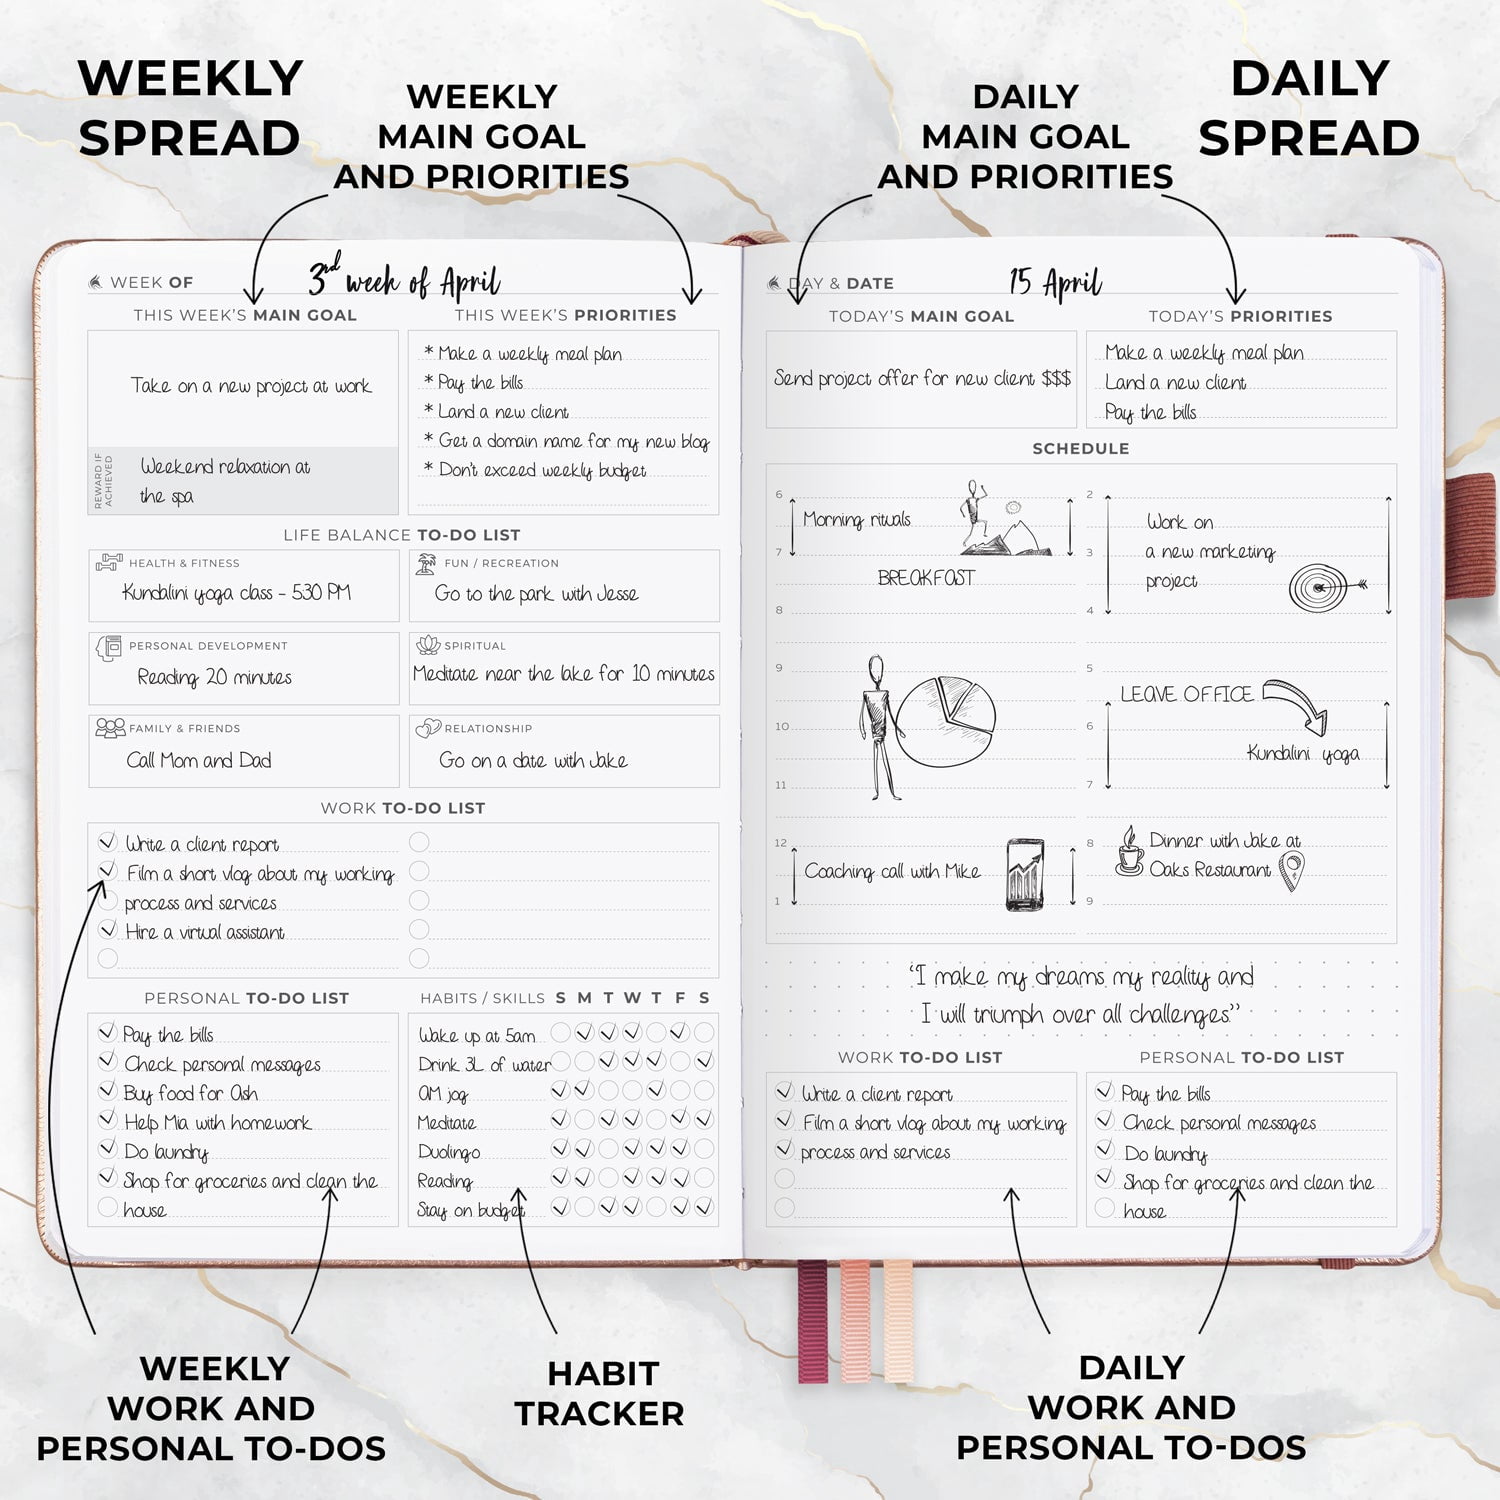 WEEKLY
SPREAD
WEEKLY
MAIN GOAL
AND PRIORITIES
DAILY
MAIN GOAL
AND PRIORITIES
DAILY
SPREAD
WEEK OF 3rd week of April
THIS WEEK'S MAIN GOAL
Take on a new project at work
REWARD IF
ACHIEVED
Weekend relaxation at
the spa
THIS WEEK'S PRIORITIES
* Make a weekly meal plan
* Pay the bills
* Land a new client
* Get a domain name for my new blog
* Don't exceed weekly budget
LIFE BALANCE TO-DO LIST
HEALTH & FITNESS
Kundalini yoga class - 530 PM
FUN / RECREATION
Go to the park with Jesse
PERSONAL DEVELOPMENT
Reading 20 minutes
SPIRITUAL
Meditate near the lake for 10 minutes
FAMILY & FRIENDS
Call Mom and Dad
RELATIONSHIP
Go on a date with Jake
WORK TO-DO LIST
Write a client report
Film a short vlog about my working
process and services
Hire a virtual assistant
PERSONAL TO-DO LIST
Pay the bills
Check personal messages
Buy food for Ash
Help Mia with homework
Do laundry
Shop for groceries and clean the
house
HABITS / SKILLS S M T W T F S
Wake up at 5am
Drink 3L of water
AM jog
Meditate
Duolingo
Reading
Stay on budget
DAY & DATE 15 April
TODAY'S MAIN GOAL
Send project offer for new client $$$
TODAY'S PRIORITIES
Make a weekly meal plan
Land a new client
Pay the bills
SCHEDULE
6
Morning rituals
7
BREAKFAST
8
9
10
11
12
Coaching call with Mike
1
2
Work on
3
a new marketing
project
4
5
LEAVE OFFICE
6
Kundalini yoga
7
8
Dinner with Jake at
Oaks Restaurant
9
"I make my dreams my reality and
I will triumph over all challenges"
WORK TO-DO LIST
Write a client report
Film a short vlog about my working
process and services
PERSONAL TO-DO LIST
Pay the bills
Check personal messages
Do laundry
Shop for groceries and clean the
house
WEEKLY
WORK AND
PERSONAL TO-DOS
HABIT
TRACKER
DAILY
WORK AND
PERSONAL TO-DOS